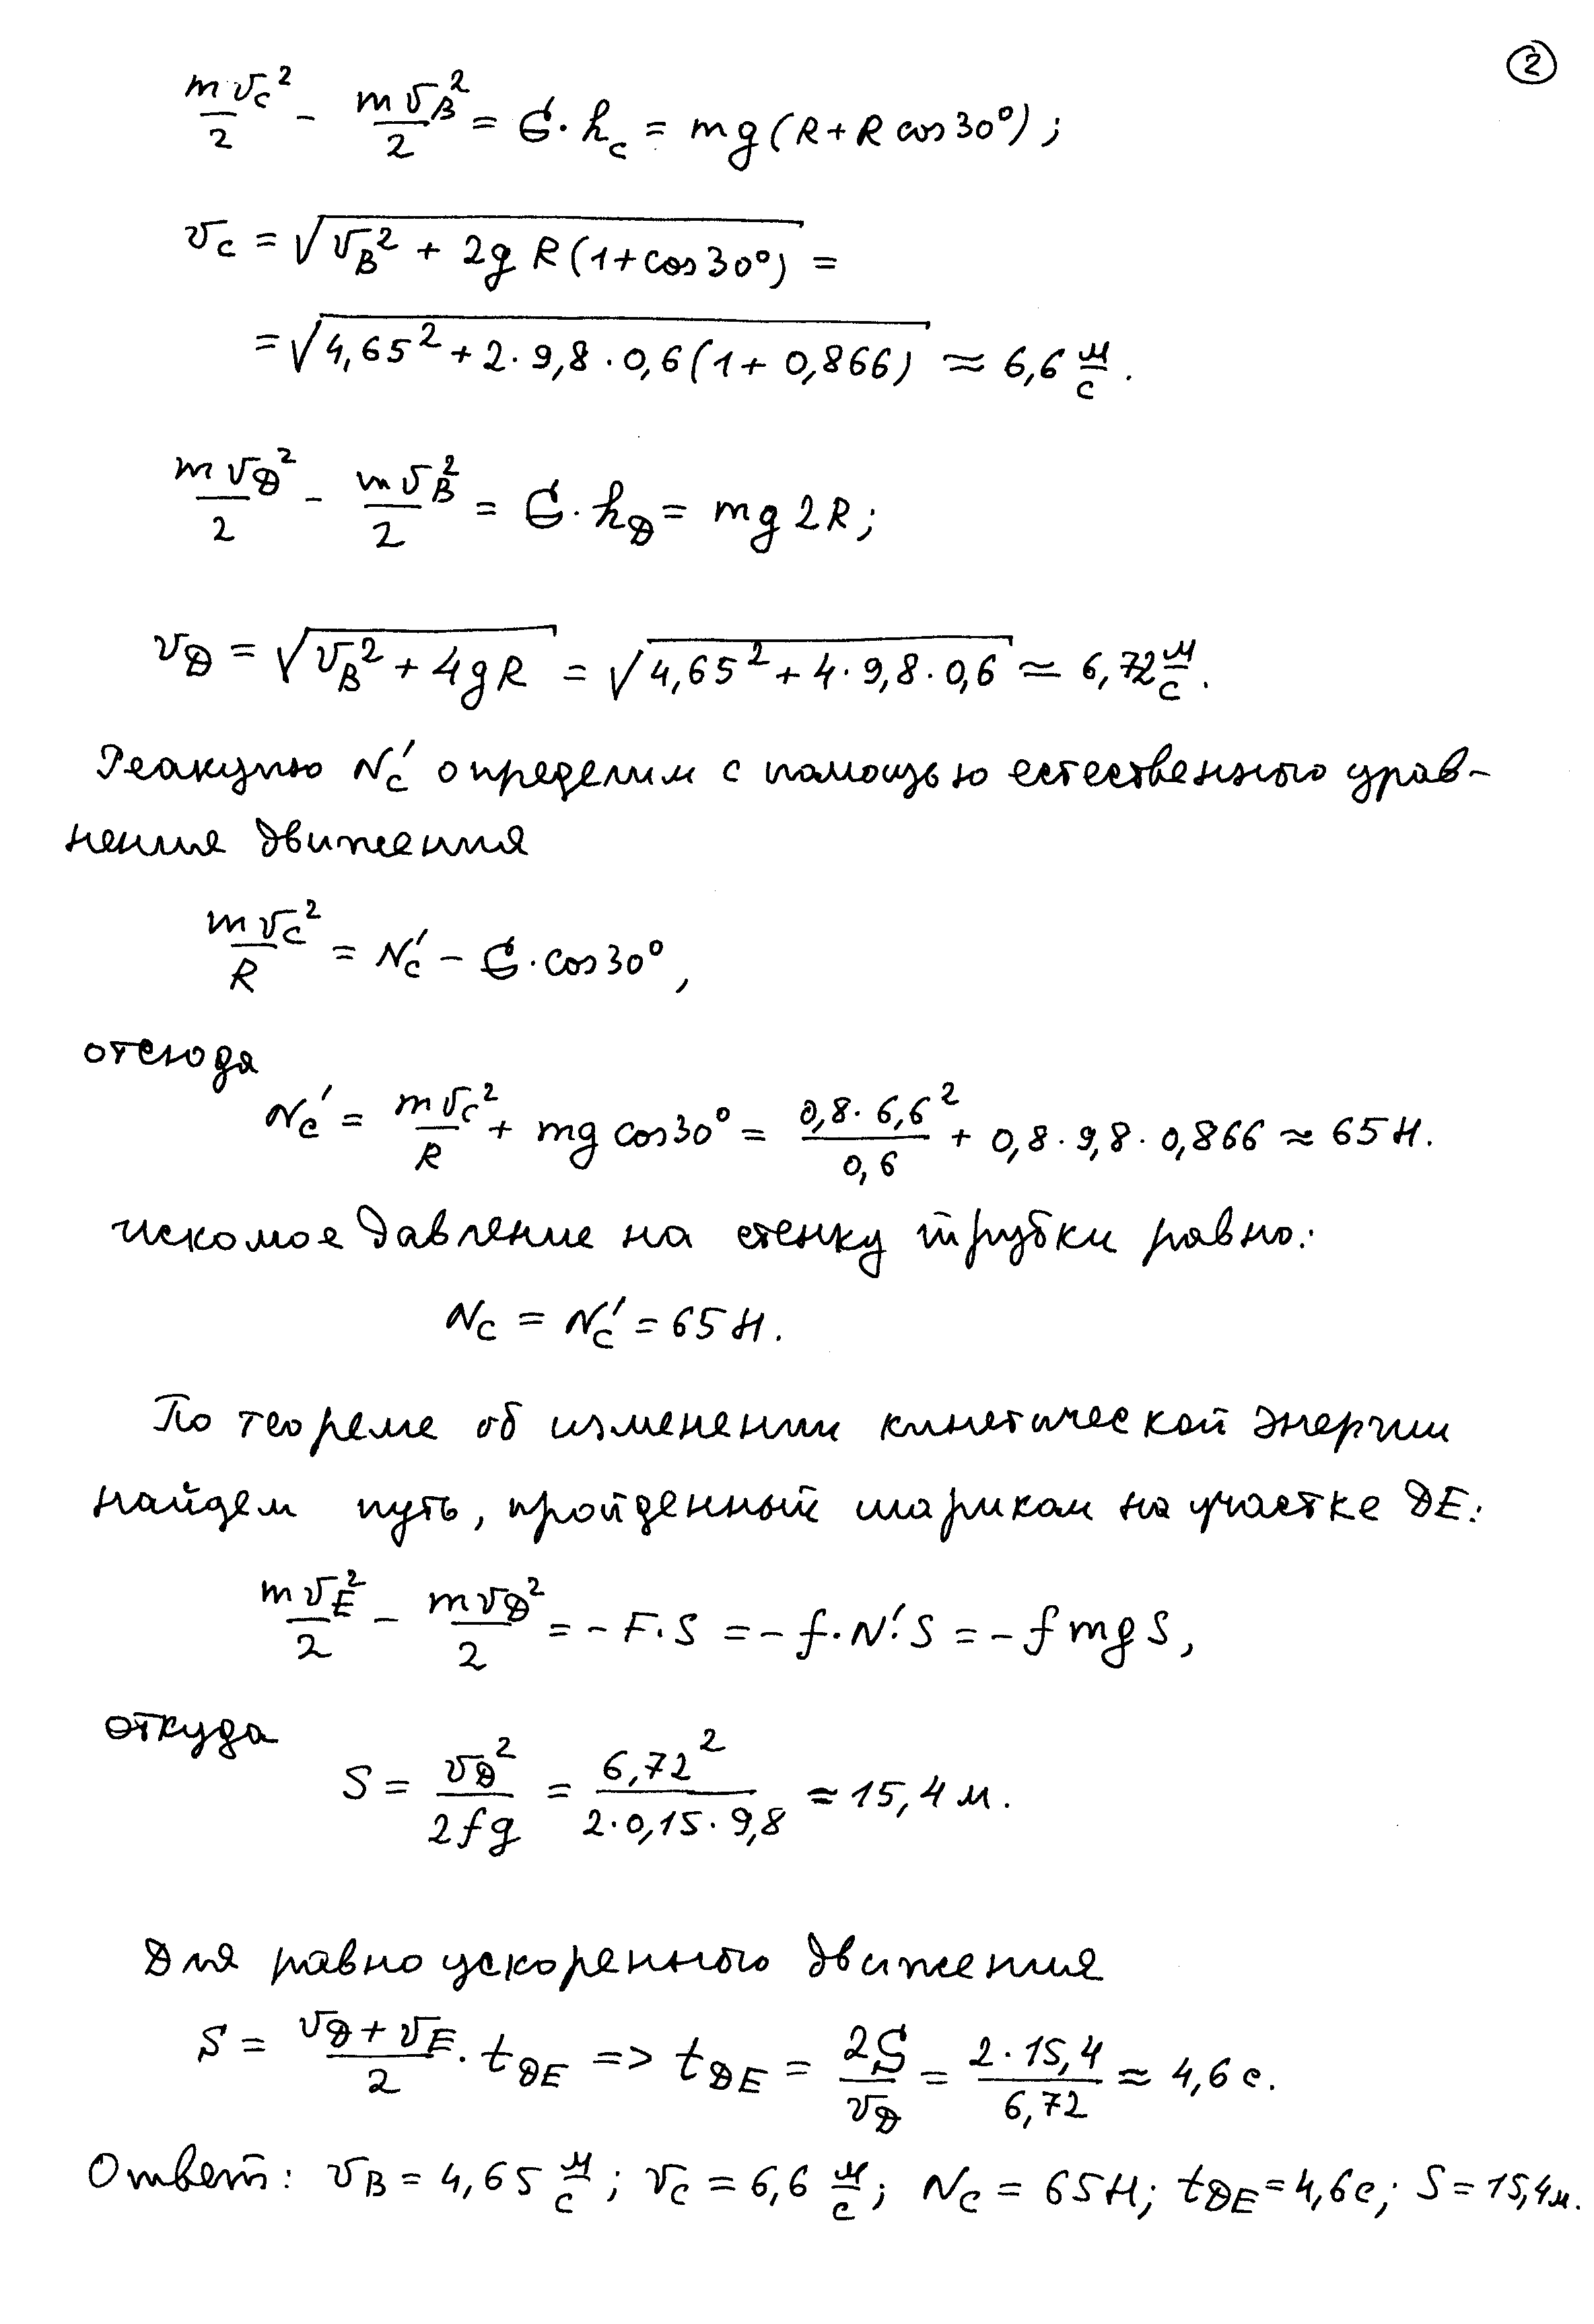 ②
mv_C²/2 - mv_B²/2 = G·h_C = mg(R+R cos30°);
v_C = √(v_B² + 2gR(1+cos30°)) =
= √(4,65² + 2·9,8·0,6(1+0,866)) ≈ 6,6 м/с.
mv_D²/2 - mv_B²/2 = G·h_D = mg2R;
v_D = √(v_B² + 4gR) = √(4,65² + 4·9,8·0,6) ≈ 6,72 м/с.
Реакцию N_C' определим с помощью естественного урав-
нения движения
mv_C²/R = N_C' - G·cos30°,
отсюда
N_C' = mv_C²/R + mg cos30° = 0,8·6,6²/0,6 + 0,8·9,8·0,866 ≈ 65Н.
искомое давление на стенку трубки равно:
N_C = N_C' = 65Н.
По теореме об изменении кинетической энергии
найдем путь, пройденный шариком на участке DE:
mv_E²/2 - mv_D²/2 = -F·S = -f·N'·S = -fmgS,
откуда
S = v_D²/2fg = 6,72²/2·0,15·9,8 ≈ 15,4м.
Для равноускоренного движения
S = (v_D+v_E)/2·t_DE => t_DE = 2S/v_D = 2·15,4/6,72 ≈ 4,6с.
Ответ: v_B = 4,65 м/с; v_C = 6,6 м/с; N_C = 65Н; t_DE = 4,6с; S = 15,4м.